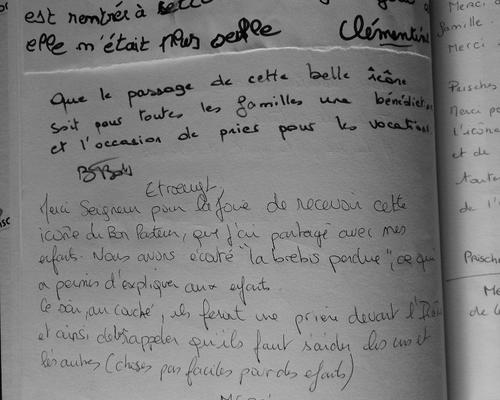 est rentré à
elle n'était plus seule Clémentine
Que le passage de cette belle icône
soit pour toutes les familles une bénédiction
et l'occasion de prier pour les vocations
Merci Seigneur pour la joie de recevoir cette
icône du Bon Pasteur, que j'ai partagé avec mes
enfants. Nous avons écouté "la brebis perdue", ce qui
a permis d'expliquer aux enfants.
Ce soir, au couché, ils feront une prière devant l'
et ainsi rappeler qu'ils faut s'aider les uns et
les autres (choses pas faciles pour des enfants)
Merci
famille
Merci
Merci
l'icône
et de
de l'